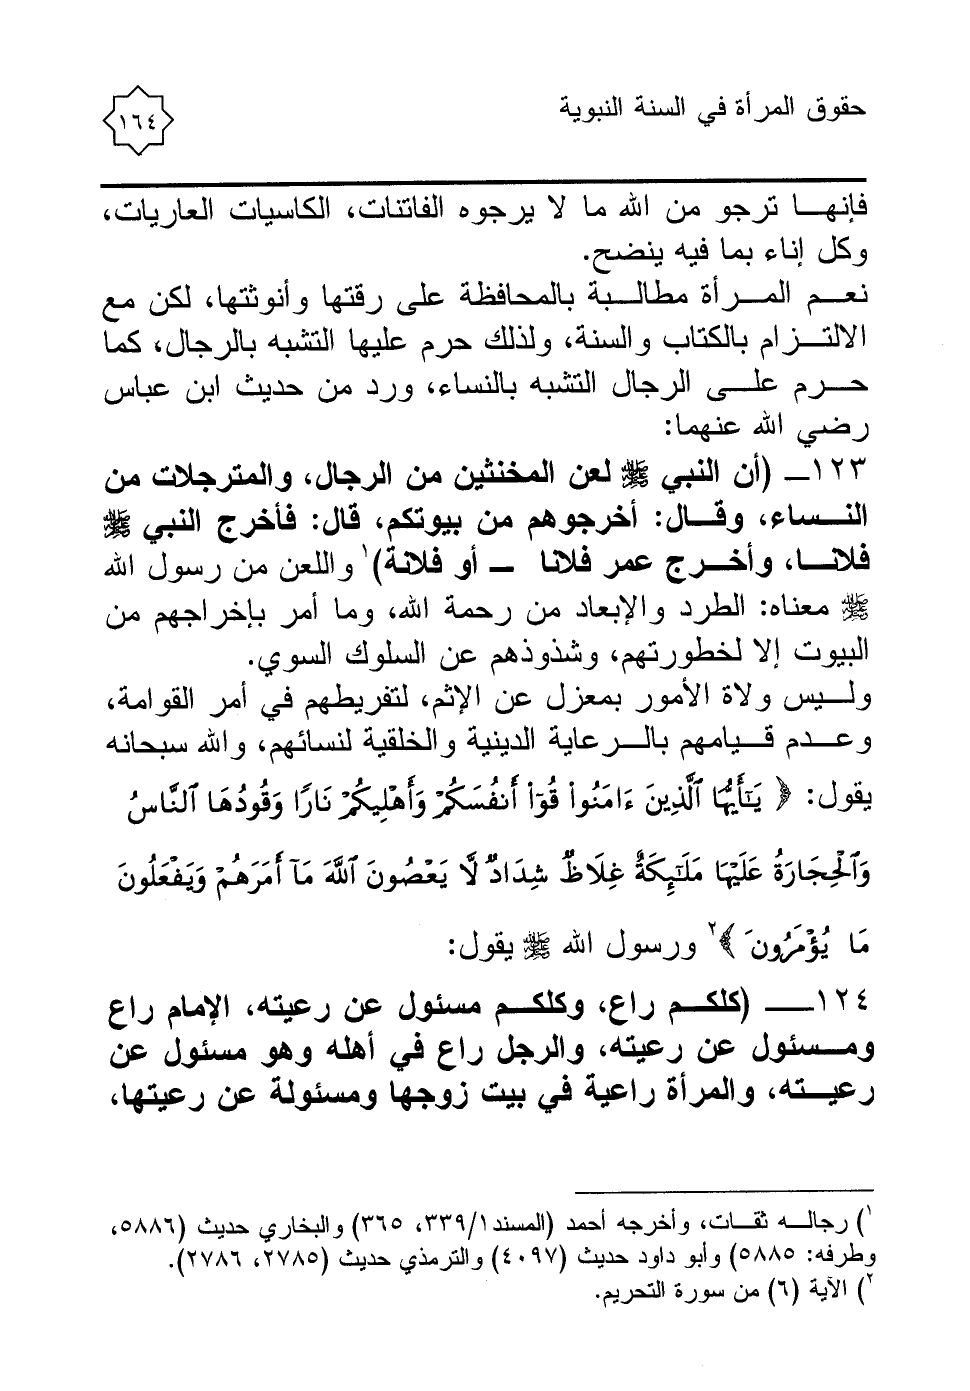 حقوق المرأة في السنة النبوية
١٦٤
فإنهـــا ترجو من الله ما لا يرجوه الفاتنات، الكاسيات العاريات،
وكل إناء بما فيه ينضح.
نعــم المــرأة مطالــبة بالمحافظة على رقتها وأنوثتها، لكن مع
الالتــزام بالكتاب والسنة، ولذلك حرم عليها التشبه بالرجال، كما
حــرم علــى الرجال التشبه بالنساء، ورد من حديث ابن عباس
رضي الله عنهما:
١٢٣ــ (أن النبي ﷺ لعن المخنثين من الرجال، والمترجلات من
النــساء، وقــال: أخرجوهم من بيوتكم، قال: فأخرج النبي ﷺ
فلانــا، وأخــرج عمر فلانا ــ أو فلانة)١ واللعن من رسول الله
ﷺ معناه: الطرد والإبعاد من رحمة الله، وما أمر بإخراجهم من
البيوت إلا لخطورتهم، وشذوذهم عن السلوك السوي.
ولــيس ولاة الأمور بمعزل عن الإثم، لتفريطهم في أمر القوامة،
وعــدم قــيامهم بالــرعاية الدينية والخلقية لنسائهم، والله سبحانه
يقول: ﴿ يَٰٓأَيُّهَا ٱلَّذِينَ ءَامَنُوا۟ قُوٓا۟ أَنفُسَكُمْ وَأَهْلِيكُمْ نَارًا وَقُودُهَا ٱلنَّاسُ
وَٱلْحِجَارَةُ عَلَيْهَا مَلَٰٓئِكَةٌ غِلَاظٌ شِدَادٌ لَّا يَعْصُونَ ٱللَّهَ مَآ أَمَرَهُمْ وَيَفْعَلُونَ
مَا يُؤْمَرُونَ ﴾٢ ورسول الله ﷺ يقول:
١٢٤ــــ (كلكــم راع، وكلكــم مسئول عن رعيته، الإمام راع
ومــسئول عن رعيته، والرجل راع في أهله وهو مسئول عن
رعيــته، والمرأة راعية في بيت زوجها ومسئولة عن رعيتها،
١) رجالــه ثقــات، وأخرجه أحمد (المسند١/٣٣٩، ٣٦٥) والبخاري حديث (٥٨٨٦،
وطرفه: ٥٨٨٥) وأبو داود حديث (٤٠٩٧) والترمذي حديث (٢٧٨٥، ٢٧٨٦).
٢) الآية (٦) من سورة التحريم.